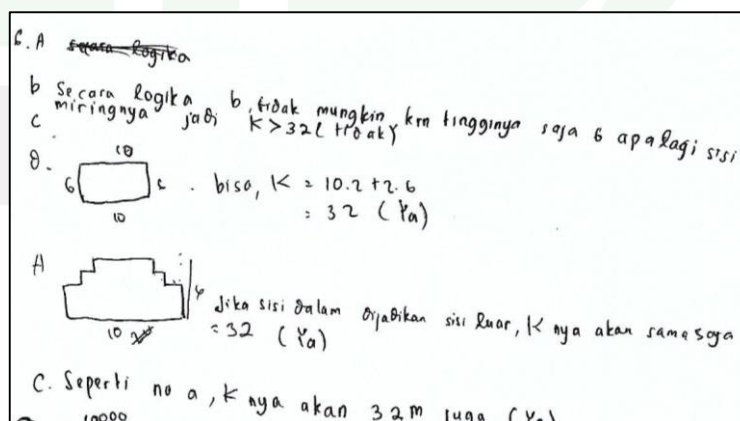 6. A secara logika
b Secara logika b, tidak mungkin krn tingginya saja 6 apalagi sisi
miringnya jadi K > 32 (tidak)
C
D.
10
6
6
10
. bisa, K = 10.2 + 2.6
= 32 (Ya)
A
10
Jika sisi dalam dijadikan sisi luar, K nya akan sama saja
= 32 (Ya)
C. Seperti no a, K nya akan 32m juga (Ya)
10000